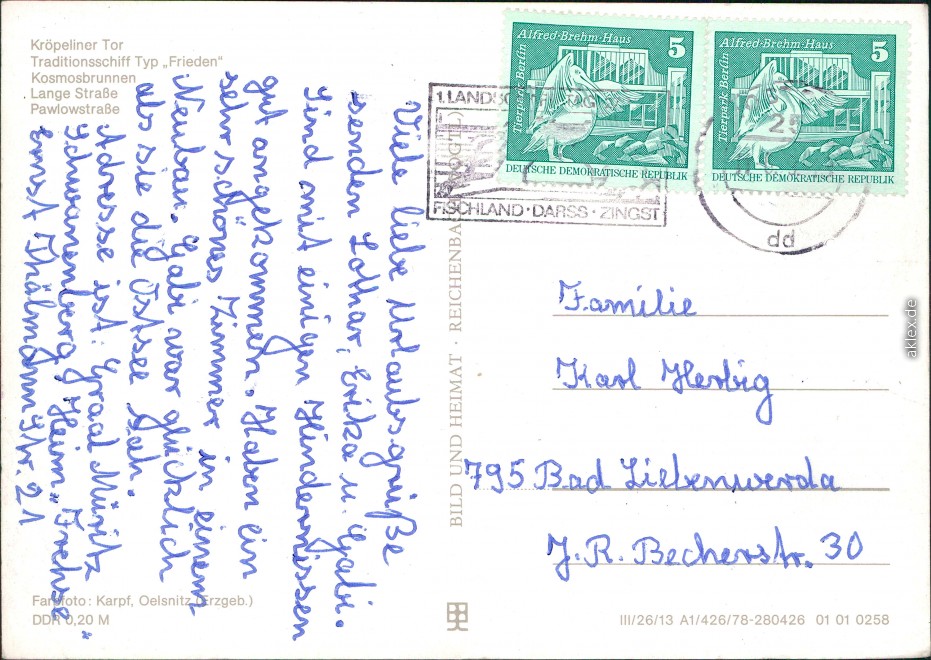 Kröpeliner Tor
Traditionsschiff Typ „Frieden"
Kosmosbrunnen
Lange Straße
Pawlowstraße
Viele liebe Urlaubsgrüße
senden Lothar, Erika u. Gabi.
Sind mit einigen Hindernissen
gut angekommen. Haben ein
sehr schönes Zimmer in einem
Neubau. Gabi war glücklich
als sie die Ostsee sah.
Adresse ist: Graal Müritz
Schwanenberg, Heim „Frehse"
Ernst Thälmannstr. 21
Farbfoto: Karpf, Oelsnitz (Erzgeb.)
DDR 0,20 M
BILD UND HEIMAT · REICHENBA
Alfred-Brehm-Haus
5
Tierpark Berlin
DEUTSCHE DEMOKRATISCHE REPUBLIK
Alfred-Brehm-Haus
5
Tierpark Berlin
DEUTSCHE DEMOKRATISCHE REPUBLIK
FISCHLAND · DARSS · ZINGST
25
dd
Familie
Karl Herbig
795 Bad Liebenwerda
J. R. Becherstr. 30
III/26/13 A1/426/78-280426 01 01 0258
aklex.de